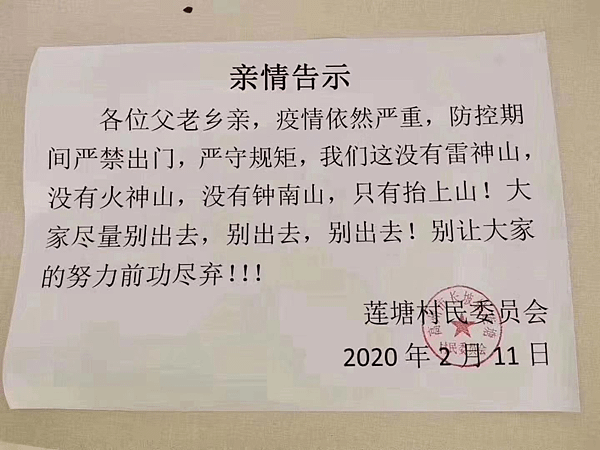 亲情告示
各位父老乡亲，疫情依然严重，防控期
间严禁出门，严守规矩，我们这没有雷神山，
没有火神山，没有钟南山，只有抬上山！大
家尽量别出去，别出去，别出去！别让大家
的努力前功尽弃!!!
莲塘村民委员会
2020 年 2 月 11 日
村民委员会